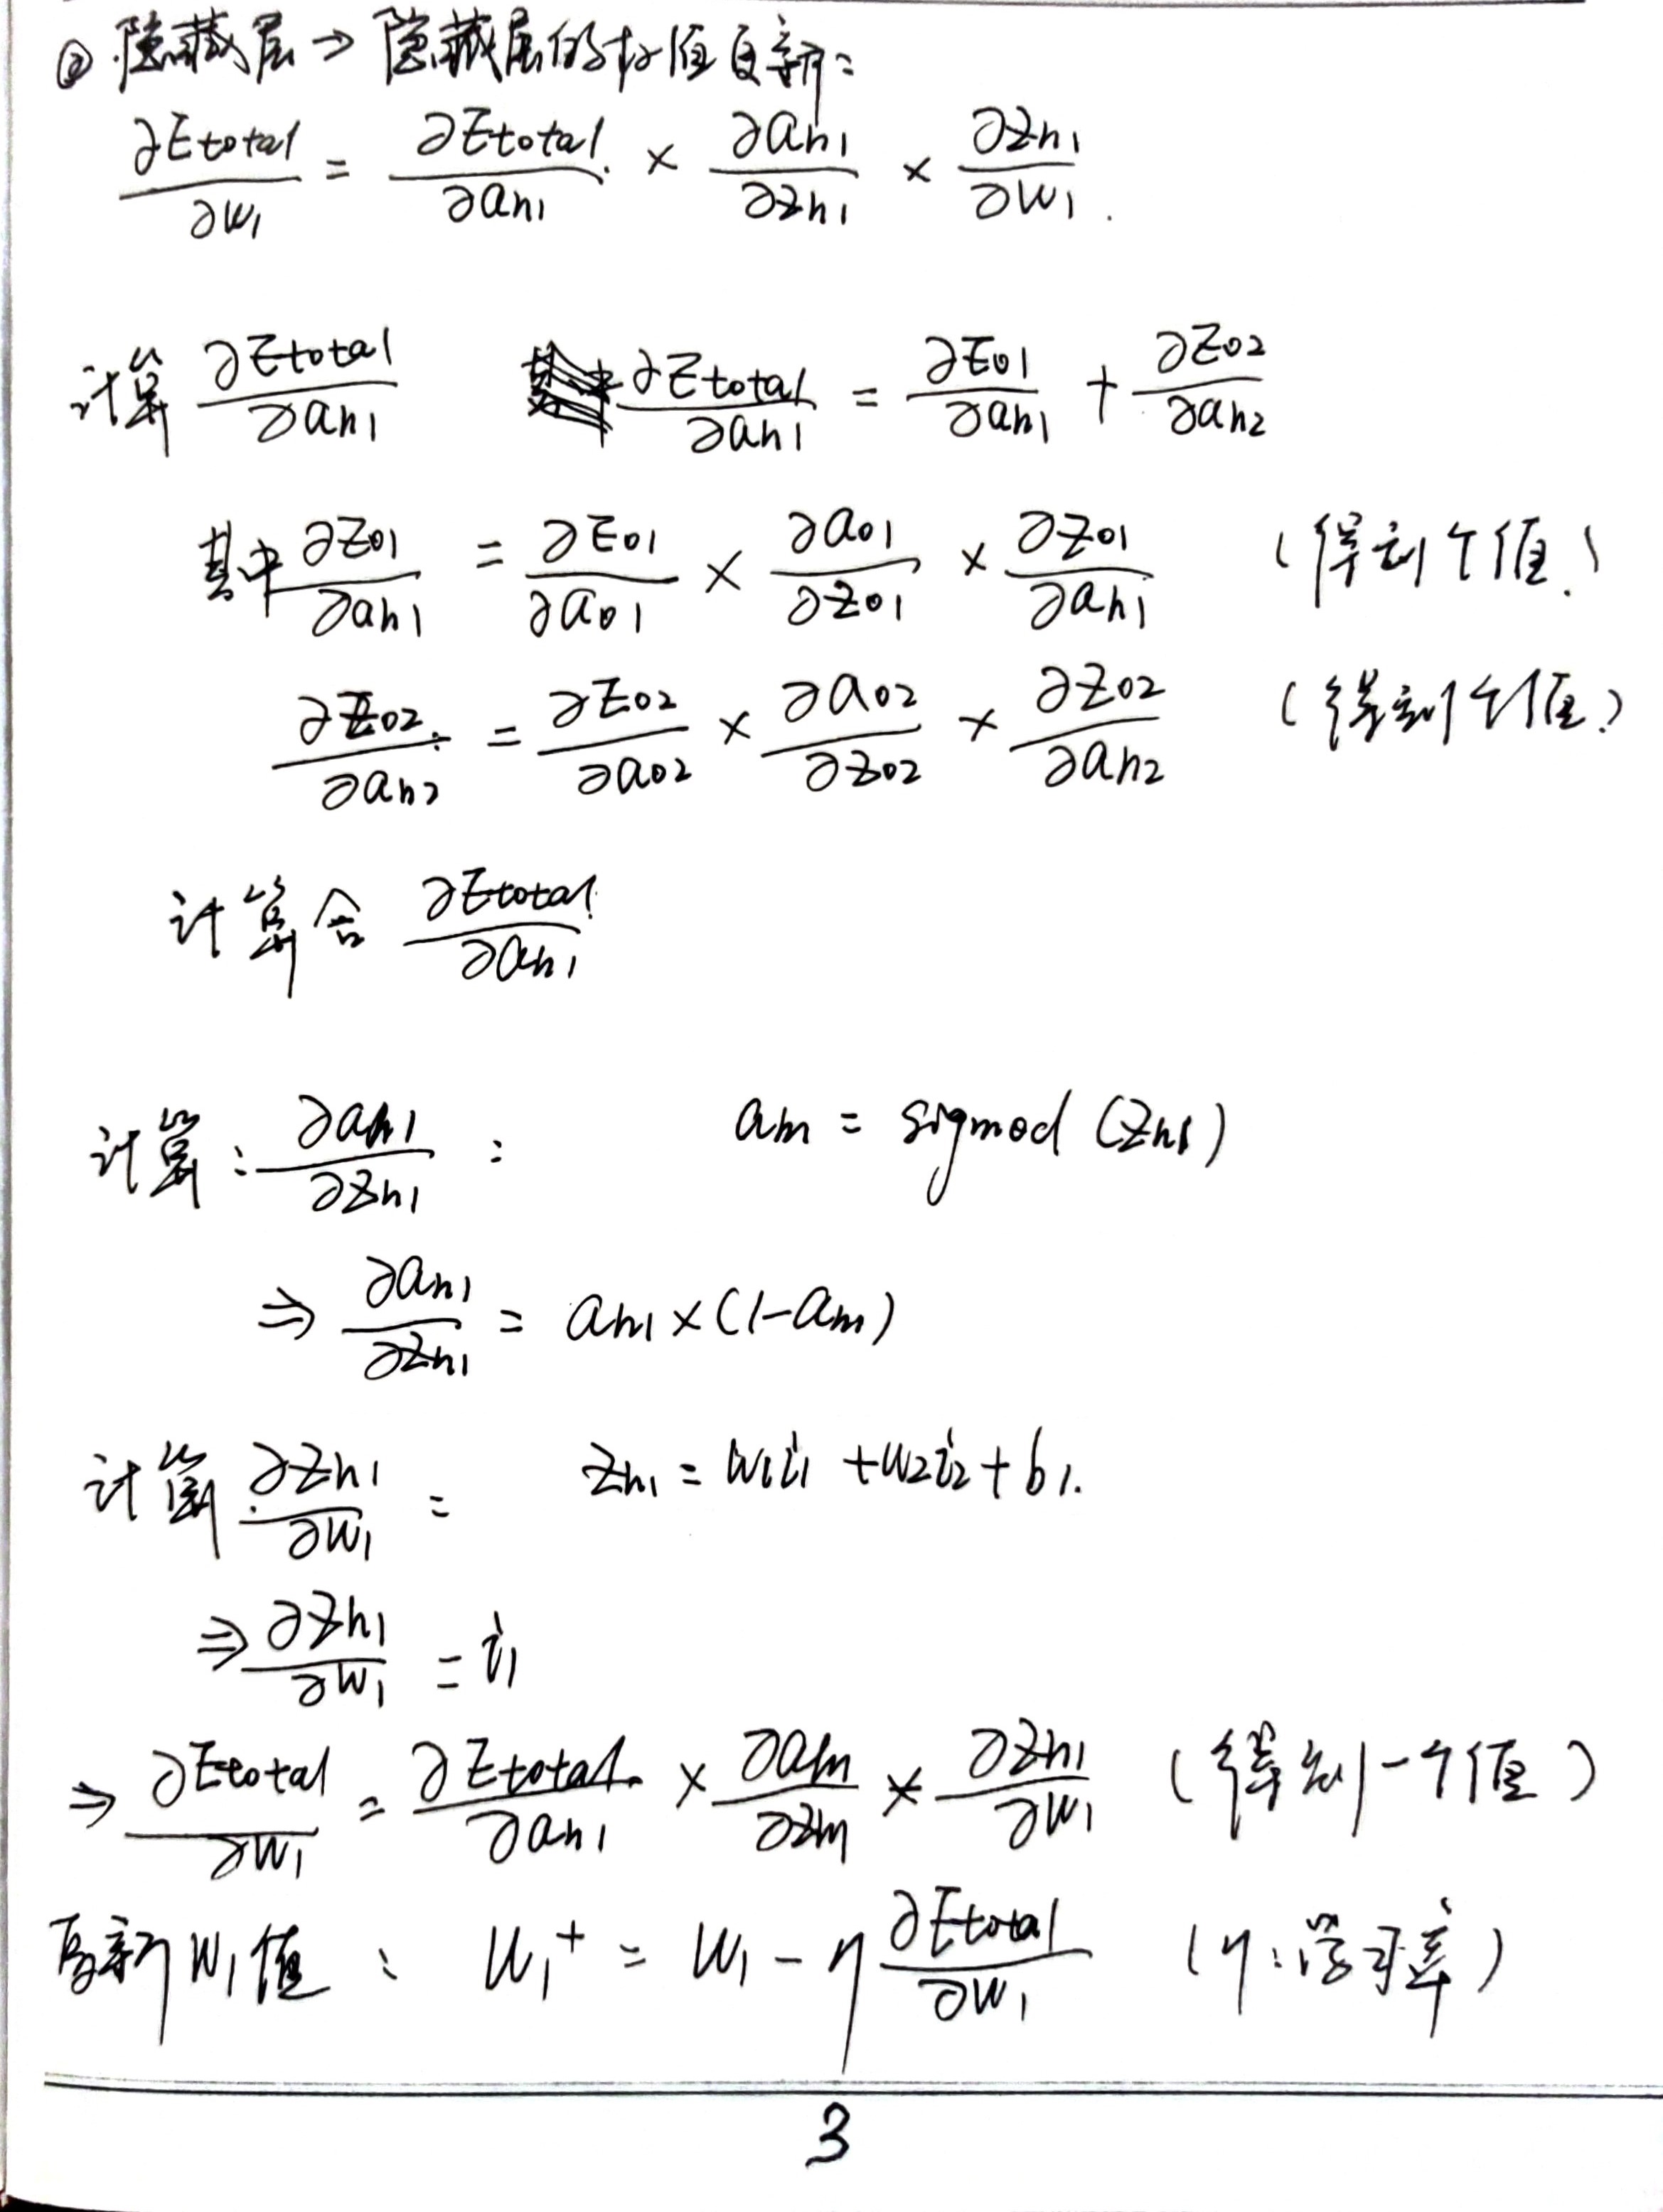 ② 隐藏层 → 隐藏层的权值更新:
∂Etotal/∂w1 = ∂Etotal/∂ah1 × ∂ah1/∂zh1 × ∂zh1/∂w1.
计算 ∂Etotal/∂ah1 ∂Etotal/∂ah1 = ∂Eo1/∂ah1 + ∂Eo2/∂ah2
其中 ∂Eo1/∂ah1 = ∂Eo1/∂ao1 × ∂ao1/∂zo1 × ∂zo1/∂ah1 (得到个值.)
∂Eo2/∂ah2 = ∂Eo2/∂ao2 × ∂ao2/∂zo2 × ∂zo2/∂ah2 (得到个值)
计算合 ∂Etotal/∂ah1
计算: ∂ah1/∂zh1 : ah1 = sigmod (zh1)
⇒ ∂ah1/∂zh1 = ah1 × (1-ah1)
计算 ∂zh1/∂w1 = zh1 = w1i1 + w2i2 + b1.
⇒ ∂zh1/∂w1 = i1
⇒ ∂Etotal/∂w1 = ∂Etotal/∂ah1 × ∂ah1/∂zh1 × ∂zh1/∂w1 (得到一个值)
更新 w1 值 : w1+ = w1 - η ∂Etotal/∂w1 (η:学习率)
3